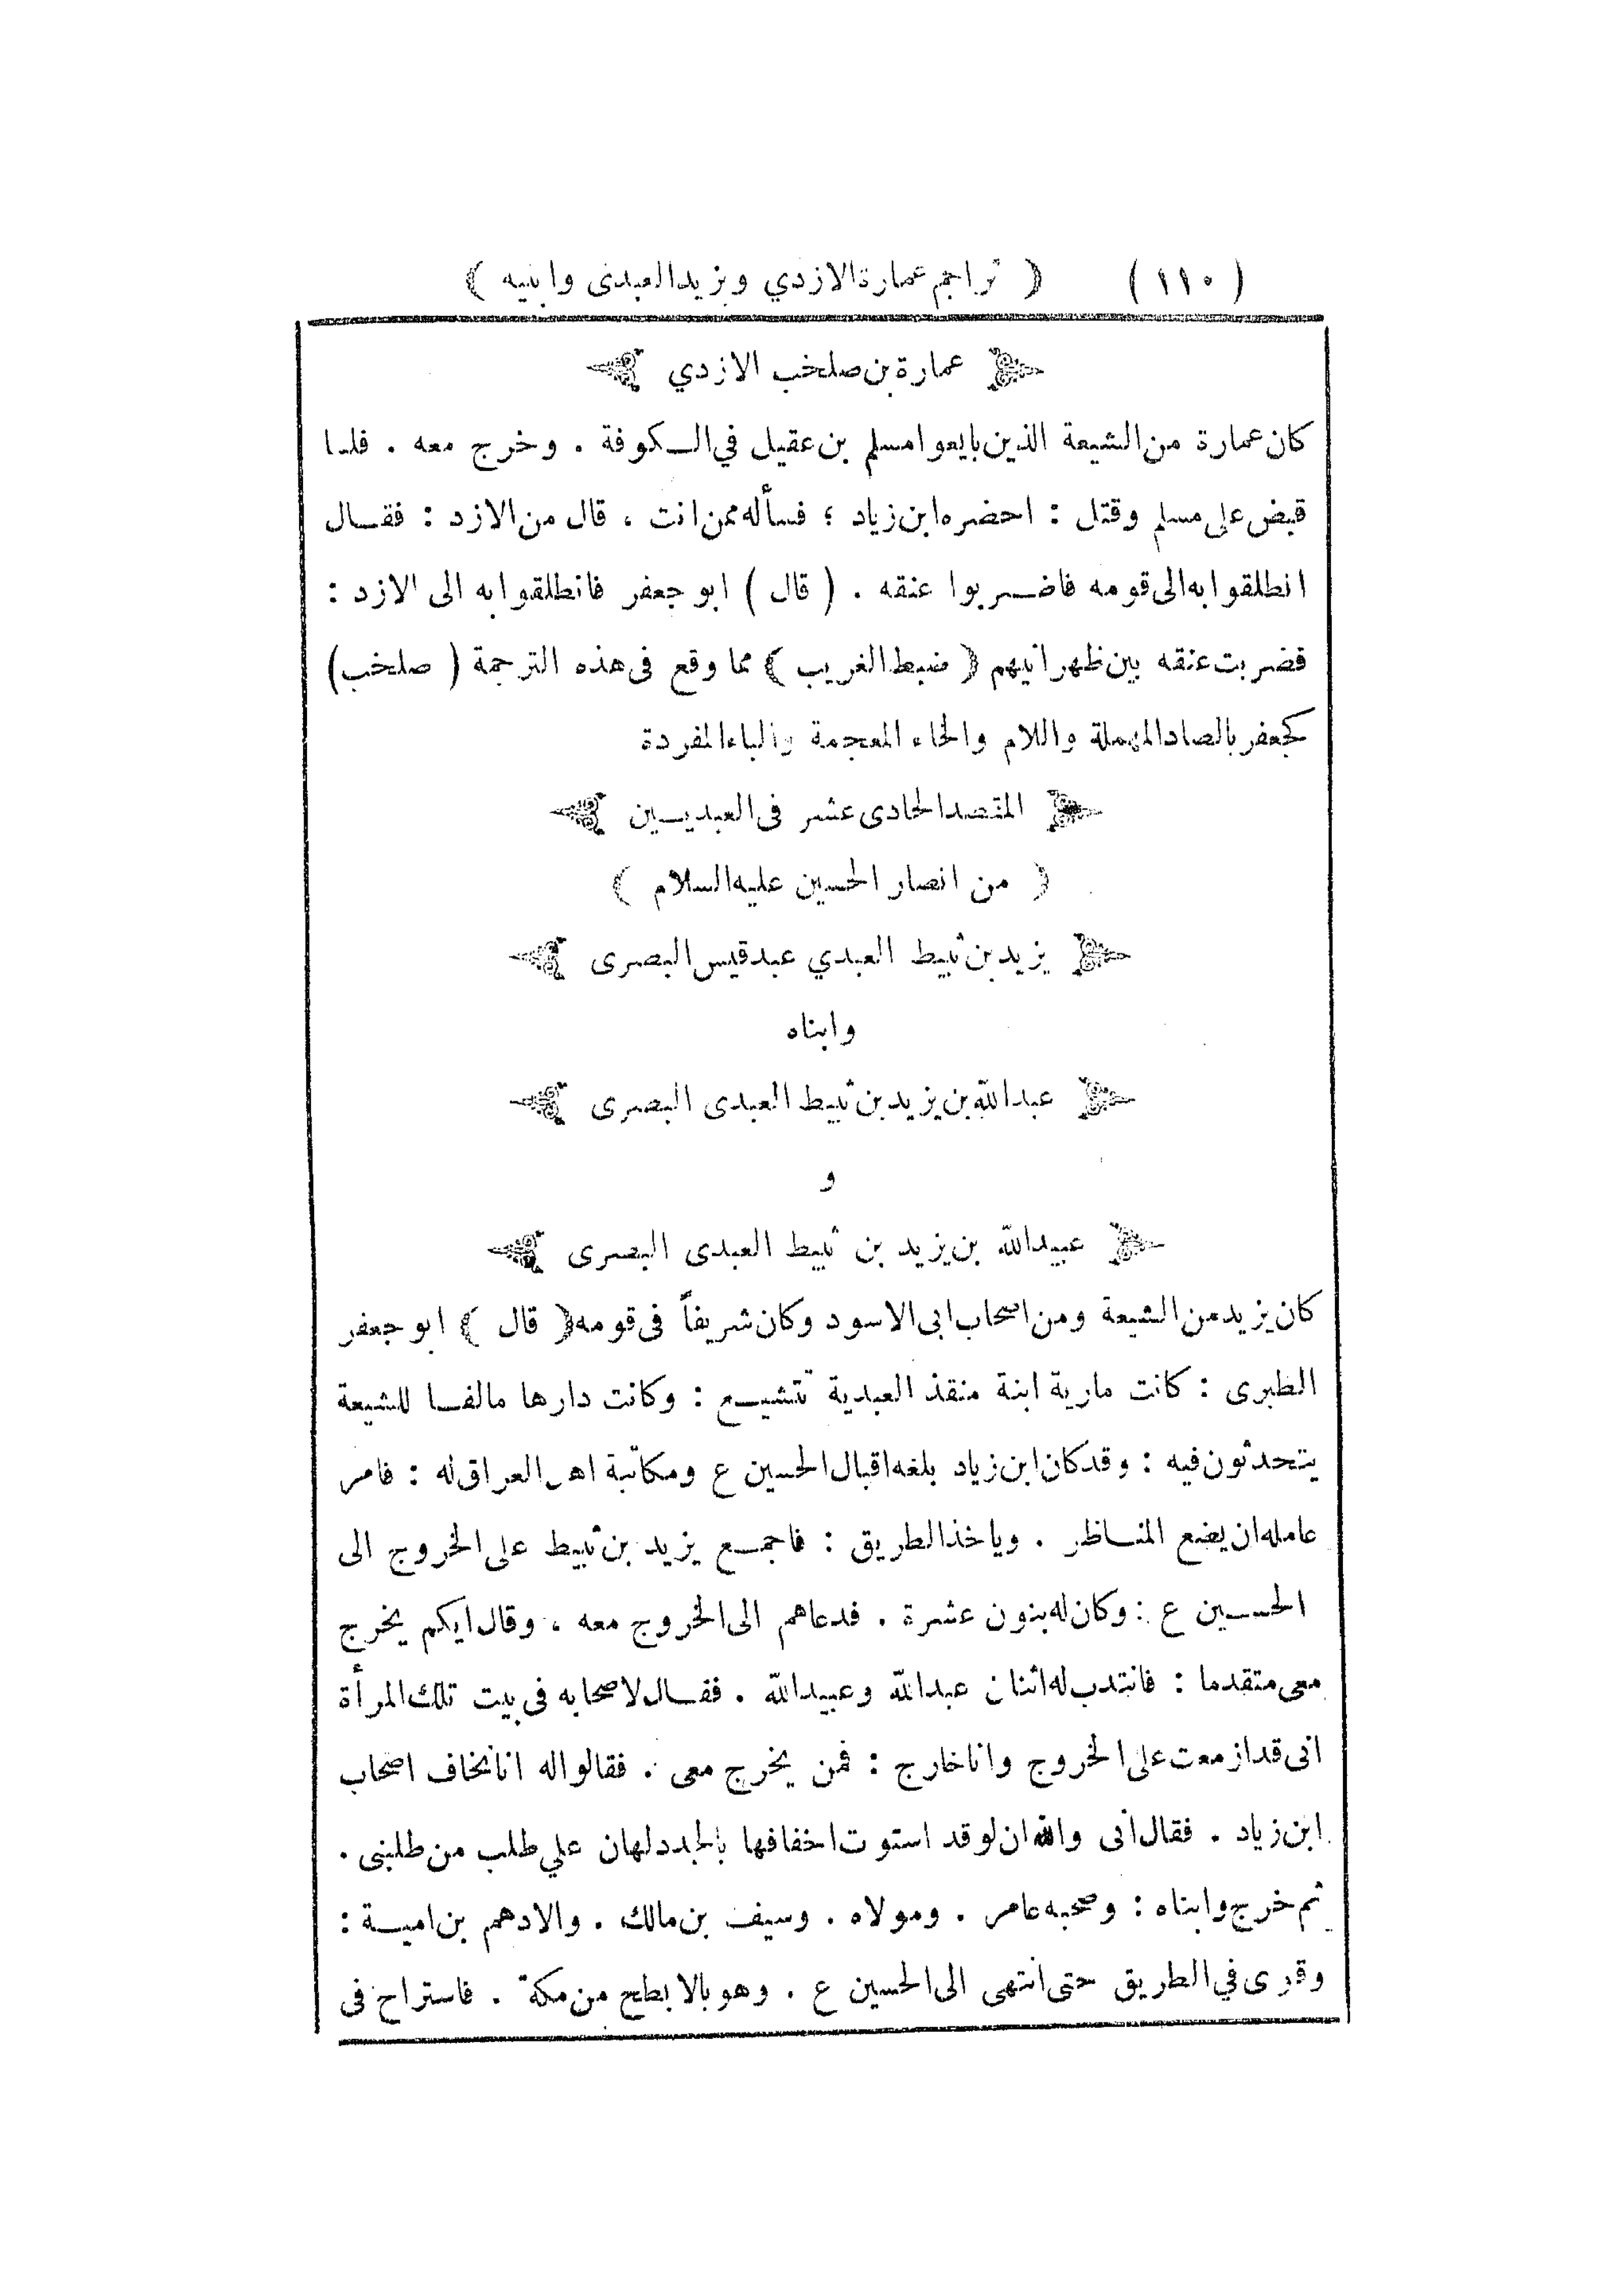 ( ١١٠ ) ﴿ تراجم عمارة الازدي ويزيد العبدى وابنيه ﴾
عمارة بن صلخب الازدي
كان عمارة من الشيعة الذين بايعوا مسلم بن عقيل في الكوفة . وخرج معه . فلما
قبض على مسلم وقتل : احضره ابن زياد ؛ فسأله ممن انت ، قال من الازد : فقال
انطلقوا به الى قومه فاضربوا عنقه . ( قال ) ابو جعفر فانطلقوا به الى الازد :
فضربت عنقه بين ظهرانيهم ﴿ ضبط الغريب ﴾ مما وقع فى هذه الترجمة ( صلخب )
كجعفر بالصاد المهملة واللام والخاء المعجمة والباء المفردة
المقصد الحادى عشر فى العبديين
﴿ من انصار الحسين عليه السلام ﴾
يزيد بن ثبيط العبدي عبد قيس البصرى
وابناه
عبدالله بن يزيد بن ثبيط العبدى البصرى
و
عبيدالله بن يزيد بن ثبيط العبدى البصرى
كان يزيد من الشيعة ومن اصحاب ابى الاسود وكان شريفاً فى قومه ﴿ قال ﴾ ابو جعفر
الطبرى : كانت مارية ابنة منقذ العبدية تتشيع : وكانت دارها مالفا للشيعة
يتحدثون فيه : وقد كان ابن زياد بلغه اقبال الحسين ع ومكاتبة اهل العراق له : فامر
عامله ان يضع المناظر . وياخذ الطريق : فاجمع يزيد بن ثبيط على الخروج الى
الحسين ع : وكان له بنون عشرة . فدعاهم الى الخروج معه ، وقال ايكم يخرج
معى متقدما : فانتدب له اثنان عبدالله وعبيدالله . فقال لاصحابه فى بيت تلك المرأة
انى قد ازمعت على الخروج وانا خارج : فمن يخرج معى . فقالوا له انا نخاف اصحاب
ابن زياد . فقال انى والله ان لو قد استوت اخفافها بالجدد لهان علي طلب من طلبنى .
ثم خرج وابناه : وصحبه عامر . ومولاه . وسيف بن مالك . والادهم بن امية :
وقوى في الطريق حتى انتهى الى الحسين ع . وهو بالابطح من مكة . فاستراح فى